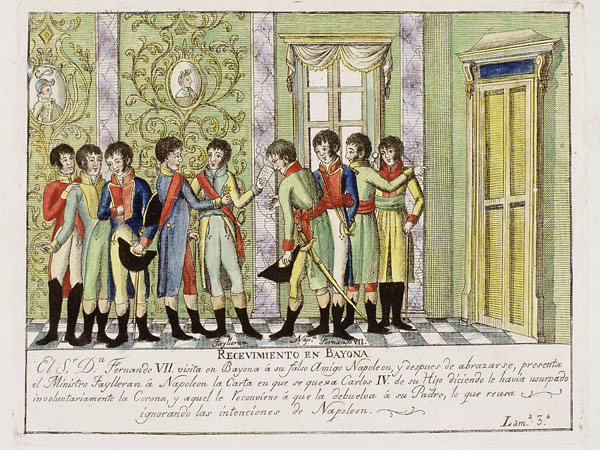 Taylleran. Napⁿ. Fernando VII.
RECEVIMIENTO EN BAYONA
El Sʳ. Dⁿ. Fernando VII. visita en Bayona á su falso Amigo Napoleon, y despues de abrazarse, presenta
el Ministro Taylleran á Napoleon la Carta en que se quexa Carlos IV. de su Hijo diciendo le havia usurpado
involuntariamente la Corona, y aquel le reconviene á que la debuelva á su Padre, lo que reusa
ignorando las intenciones de Napoleon.
Lamᵃ. 3ᵃ